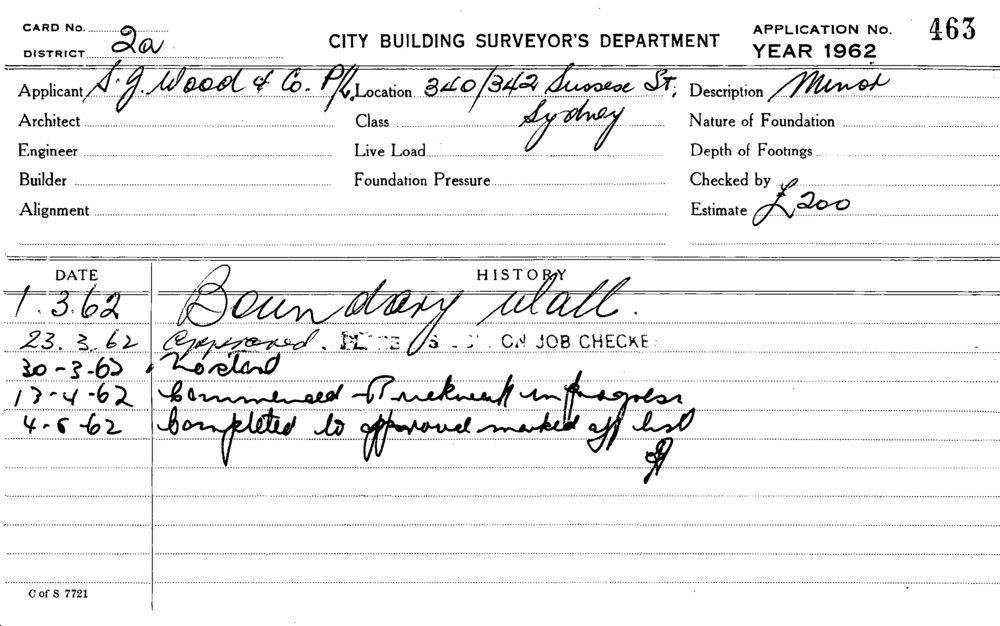 CARD No.
DISTRICT 2a
CITY BUILDING SURVEYOR'S DEPARTMENT
APPLICATION No. 463
YEAR 1962
Applicant S. J. Wood & Co. P/L. Location 340/342 Sussex St, Description Minor
Architect Class Sydney Nature of Foundation
Engineer Live Load Depth of Footings
Builder Foundation Pressure Checked by
Alignment Estimate £200
DATE HISTORY
1.3.62 Boundary Wall.
23.3.62 Approved. ON JOB CHECKE
30-3-62 No start
13-4-62 Commenced - Brickwork in progress
4-5-62 Completed to approval marked off list
C of S 7721